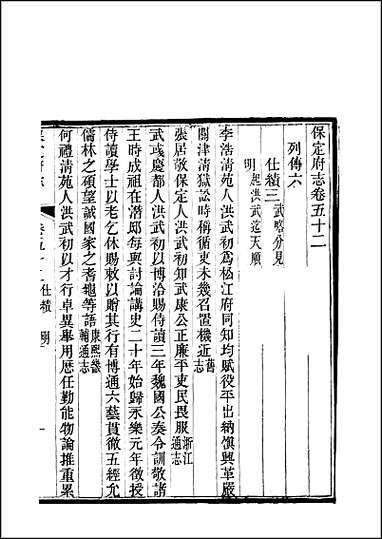 保定府志卷五十二
列傳六
仕績三 武略分見
明 起洪武迄天順
李浩淸苑人洪武初爲松江府同知均賦役平出納愼興革嚴
關津淸獄訟時稱循吏未幾召置機近 舊志
張居敬保定人洪武初知武康公正廉平吏民畏服 浙江通志
武彧慶都人洪武初以博洽賜侍讀三年魏國公奏令訓敎諸
王時成祖在潛邸每與討論講史二十年始歸永樂元年徵授
侍讀學士以老乞休賜敕以贈其行有博通六藝貫徹五經允
儒林之碩望誠國家之耆龜等語 康熙畿輔通志
何禮淸苑人洪武初以才行卓異舉用歷任勤能物論推重累
仕績 明
一